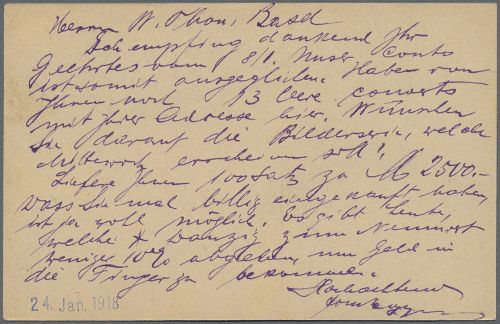 Herrn W. Thon, Basel
Ich empfing dankend Ihr
Geehrtes vom 8/1. Unser Conto
ist somit ausgeglichen. Haben von
Ihnen noch 13 leere Couverts
mit Ihrer Adresse hier. Wünschen
Sie darauf die Bilderserie, welche
Mittwoch erscheinen soll?
Liefere Ihnen 100 Satz zu M 2500.-
Dass Sie mal billig eingekauft haben,
ist ja wohl möglich. Es gibt Leute,
welche * Danzig zum Nennwert
weniger 10% abgeben, um Geld in
die Finger zu bekommen.
Hochachtend
24. Jan. 1918